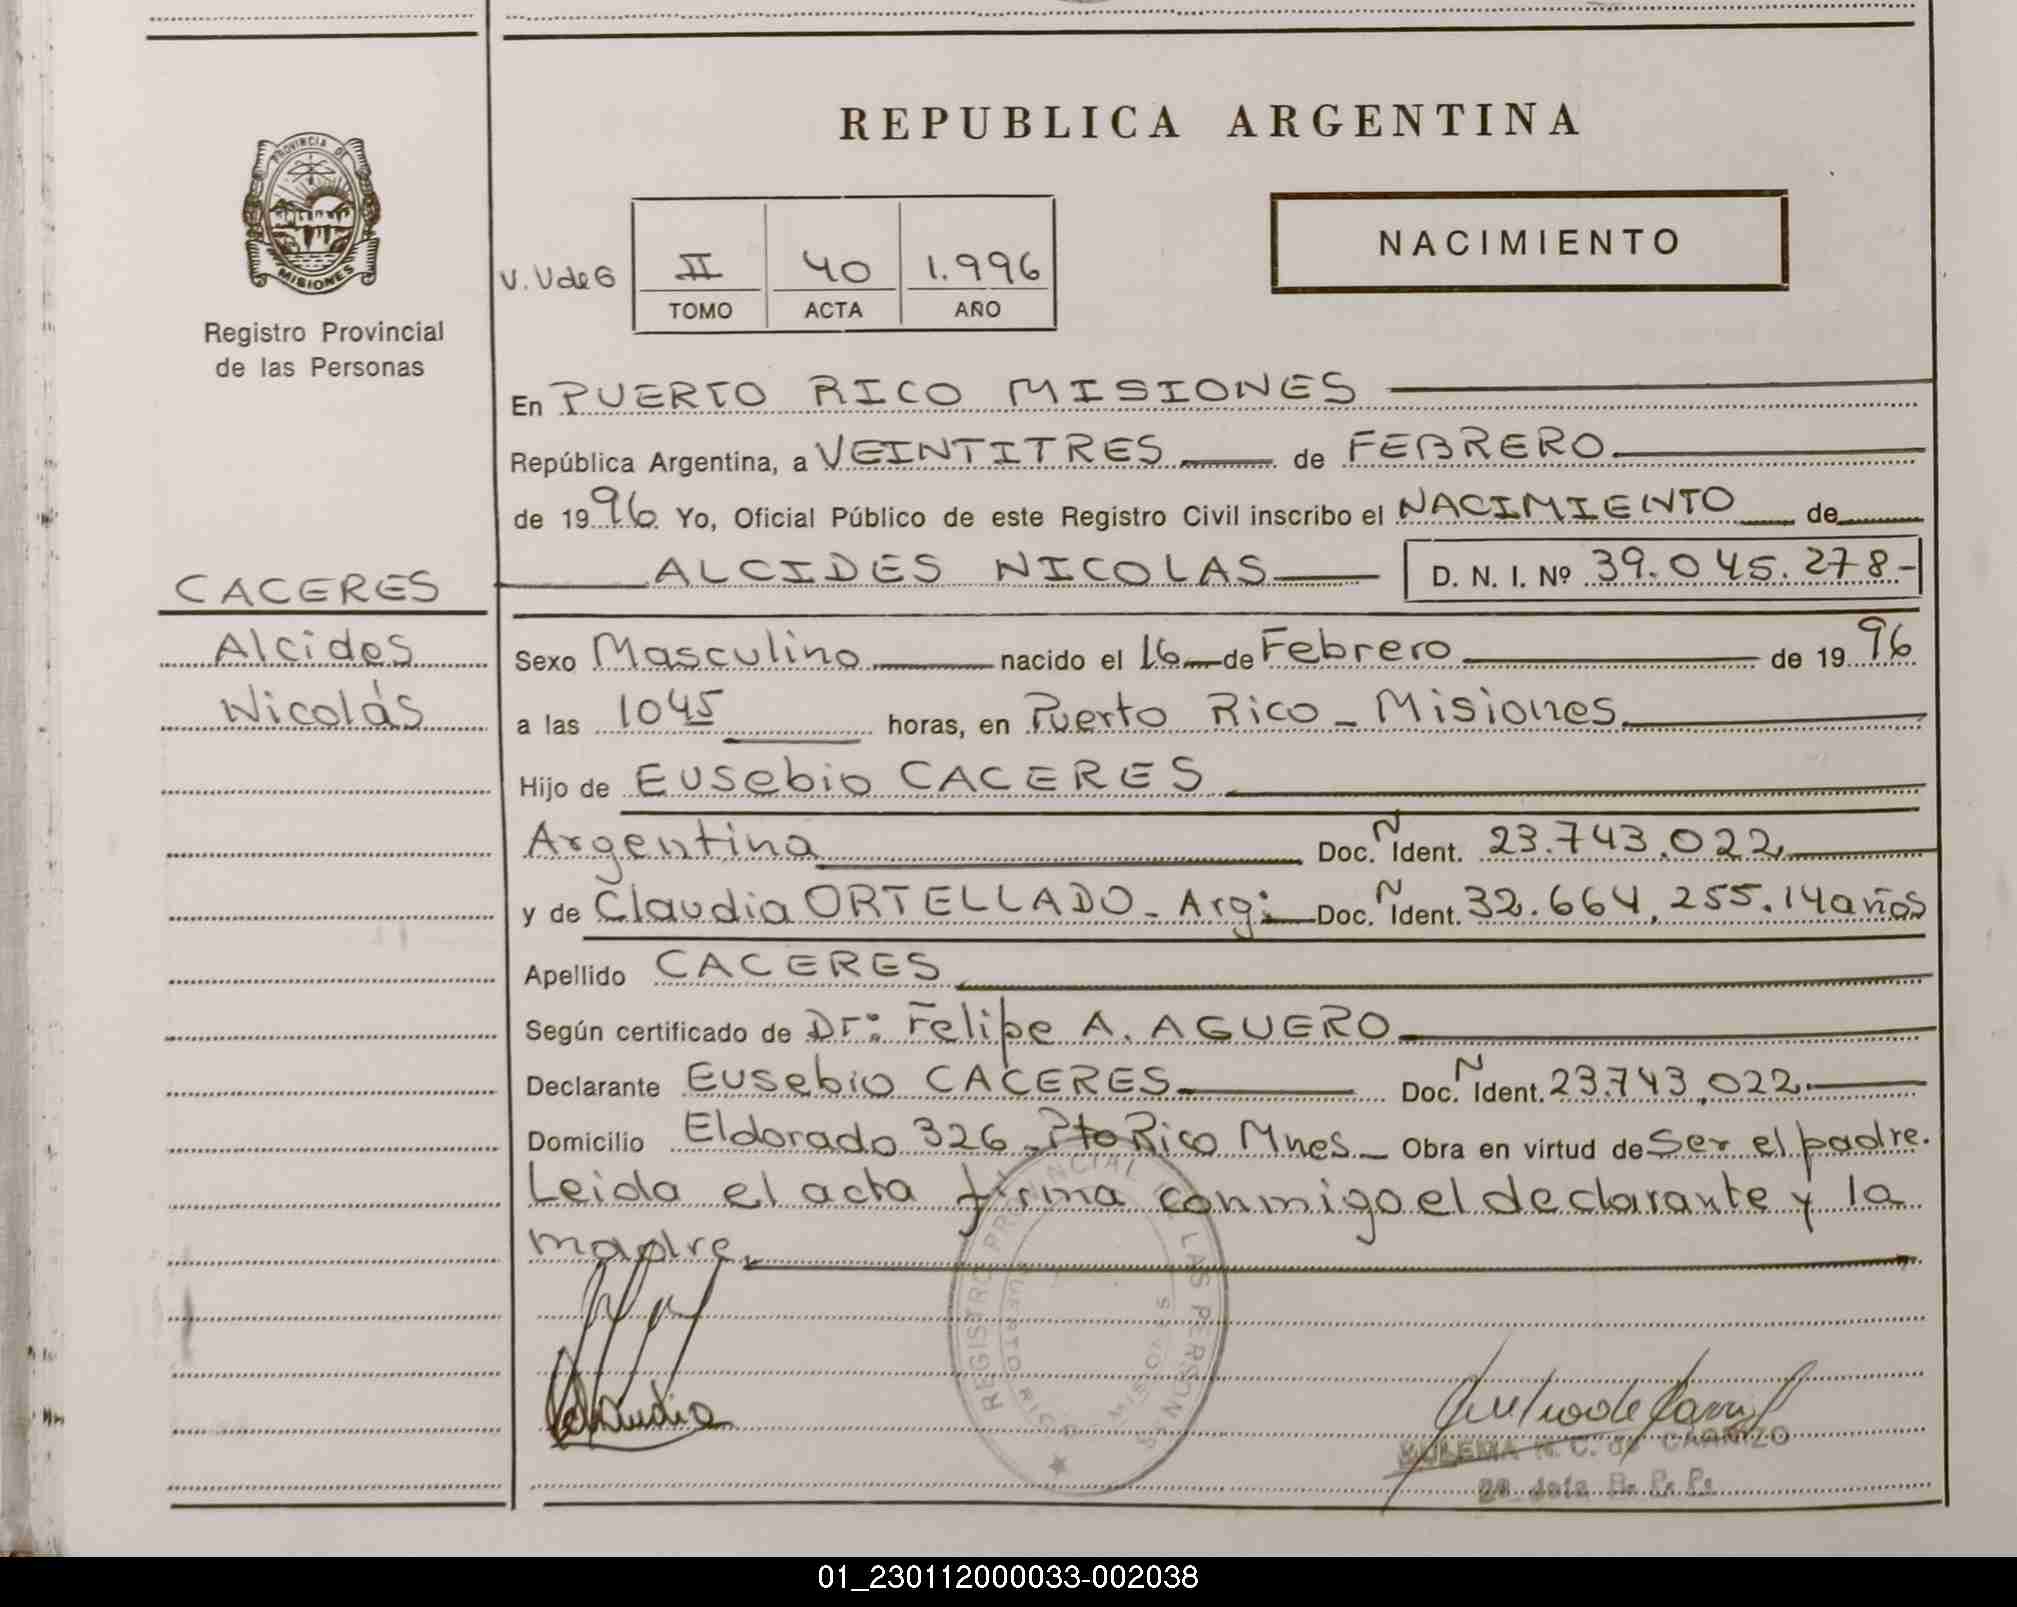 REPUBLICA ARGENTINA
PROVINCIA DE
MISIONES
Registro Provincial
de las Personas
NACIMIENTO
V. V de G
II 40 1.996
TOMO ACTA AÑO
En PUERTO RICO MISIONES
República Argentina, a VEINTITRES de FEBRERO
de 1996 Yo, Oficial Público de este Registro Civil inscribo el NACIMIENTO de
ALCIDES NICOLAS D. N. I. Nº 39.045.278-
CACERES
Alcides
Nicolás
Sexo Masculino nacido el 16 de Febrero de 1996
a las 1045 horas, en Puerto Rico - Misiones
Hijo de Eusebio CACERES
Argentina Doc. N Ident. 23.743.022
y de Claudia ORTELLADO - Arg: Doc. N Ident. 32.664.255.14 años
Apellido CACERES
Según certificado de Dr: Felipe A. AGUERO
Declarante Eusebio CACERES Doc. N Ident. 23.743.022
Domicilio Eldorado 326 - Pto Rico Mnes - Obra en virtud de Ser el padre.
Leida el acta firma conmigo el declarante y la
madre.
REGISTRO PROVINCIAL DE LAS PERSONAS
PUERTO RICO MISIONES
Claudia
ZULEMA N. C. de CARRIZO
2º Jefa R. P. P.
01_230112000033-002038